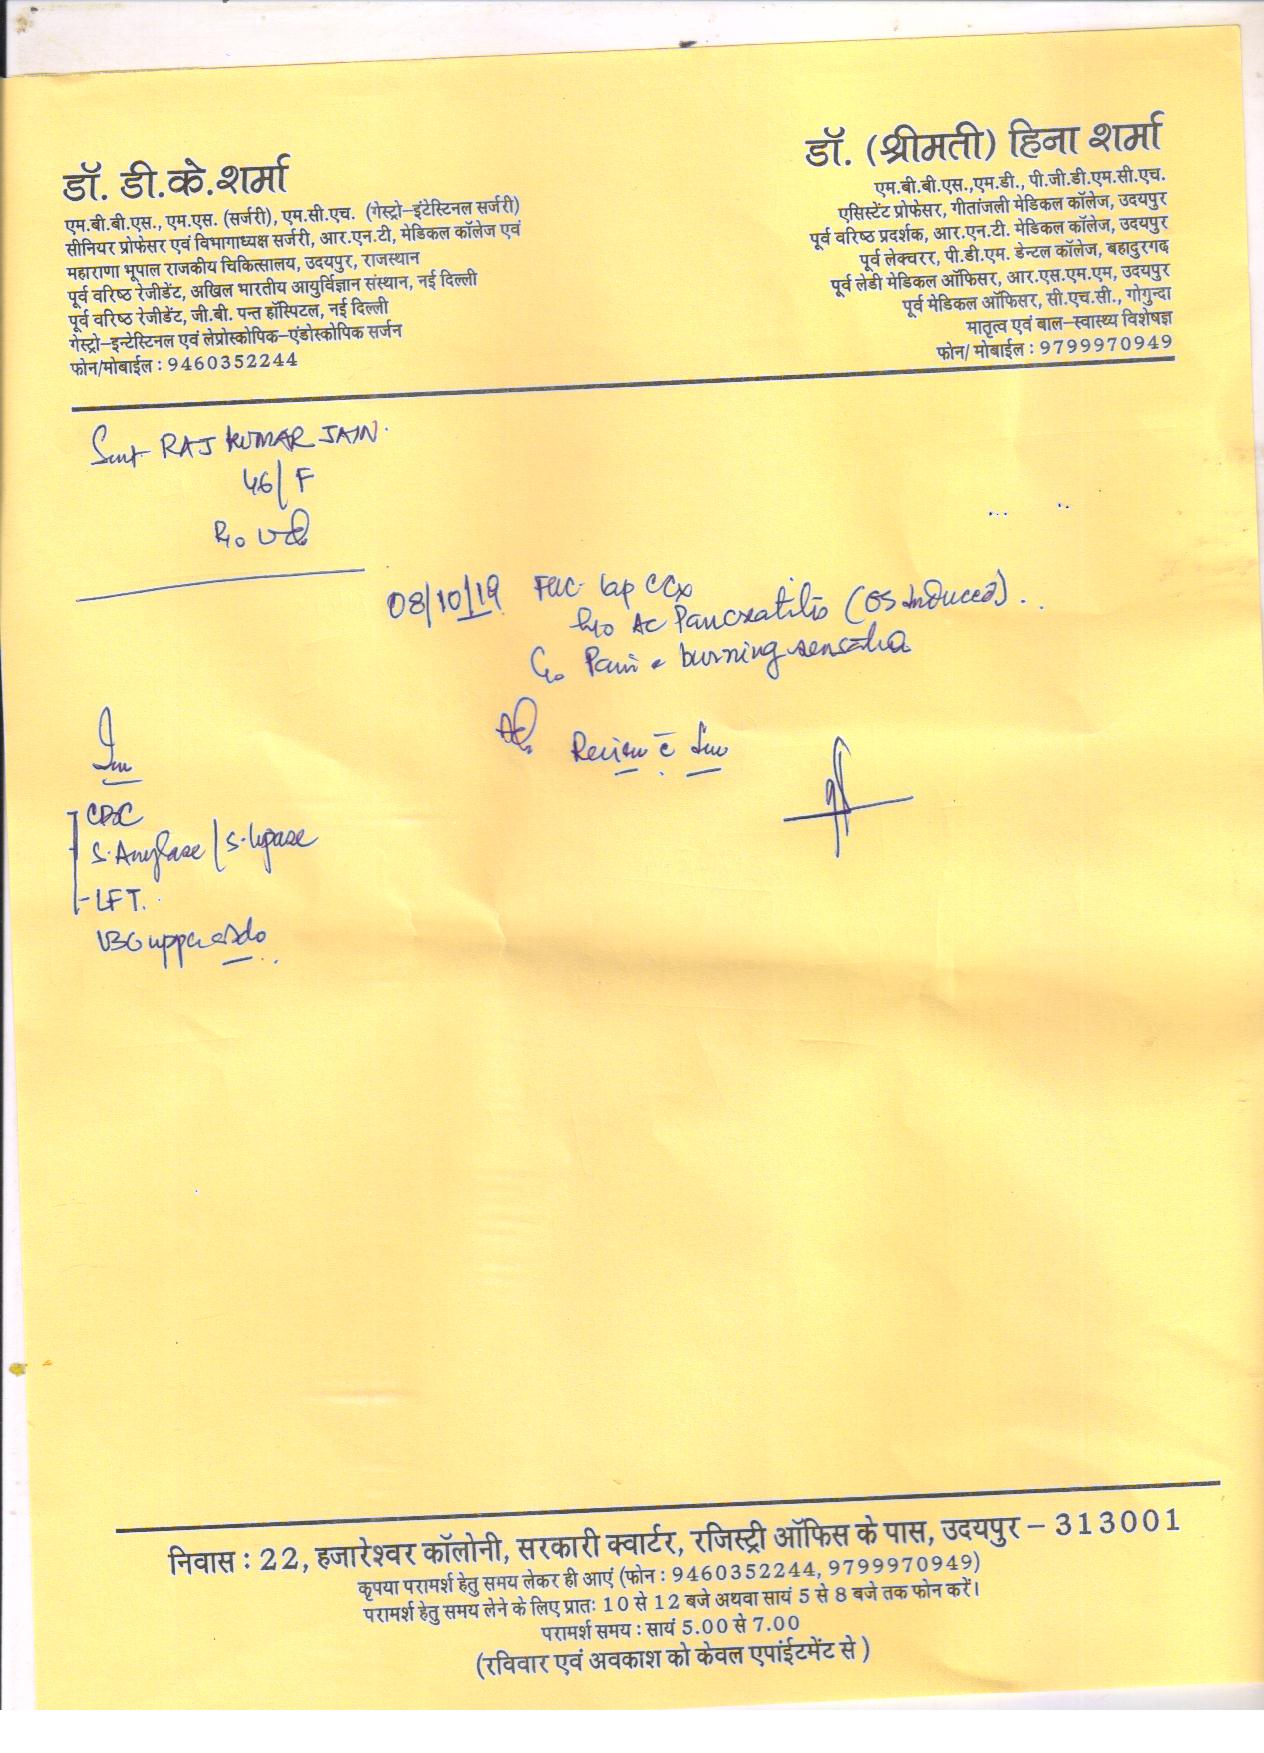 डॉ. डी.के.शर्मा
एम.बी.बी.एस., एम.एस. (सर्जरी), एम.सी.एच. (गेस्ट्रो–इंटेस्टिनल सर्जरी)
सीनियर प्रोफेसर एवं विभागाध्यक्ष सर्जरी, आर.एन.टी, मेडिकल कॉलेज एवं
महाराणा भूपाल राजकीय चिकित्सालय, उदयपुर, राजस्थान
पूर्व वरिष्ठ रेजीडेंट, अखिल भारतीय आयुर्विज्ञान संस्थान, नई दिल्ली
पूर्व वरिष्ठ रेजीडेंट, जी.बी. पन्त हॉस्पिटल, नई दिल्ली
गेस्ट्रो–इन्टेस्टिनल एवं लेप्रोस्कोपिक–एंडोस्कोपिक सर्जन
फोन/मोबाईल : 9460352244
डॉ. (श्रीमती) हिना शर्मा
एम.बी.बी.एस.,एम.डी., पी.जी.डी.एम.सी.एच.
एसिस्टेंट प्रोफेसर, गीतांजली मेडिकल कॉलेज, उदयपुर
पूर्व वरिष्ठ प्रदर्शक, आर.एन.टी. मेडिकल कॉलेज, उदयपुर
पूर्व लेक्चरर, पी.डी.एम. डेन्टल कॉलेज, बहादुरगढ़
पूर्व लेडी मेडिकल ऑफिसर, आर.एस.एम.एम, उदयपुर
पूर्व मेडिकल ऑफिसर, सी.एच.सी., गोगुन्दा
मातृत्व एवं बाल–स्वास्थ्य विशेषज्ञ
फोन/ मोबाईल : 9799970949
Smt RAJ KUMAR JAIN.
46/F
R/o
08/10/19 FUC lap CCx
H/o Ac Pancreatitis (GS Induced)..
C/o Pain burning sensation
Adv Review c̄ Inv
Inv
CBC
S. Amylase / S. lipase
- LFT.
USG upper abdo
निवास : 22, हजारेश्वर कॉलोनी, सरकारी क्वार्टर, रजिस्ट्री ऑफिस के पास, उदयपुर – 313001
कृपया परामर्श हेतु समय लेकर ही आएं (फोन : 9460352244, 9799970949)
परामर्श हेतु समय लेने के लिए प्रातः 10 से 12 बजे अथवा सायं 5 से 8 बजे तक फोन करें।
परामर्श समय : सायं 5.00 से 7.00
(रविवार एवं अवकाश को केवल एपांईटमेंट से )